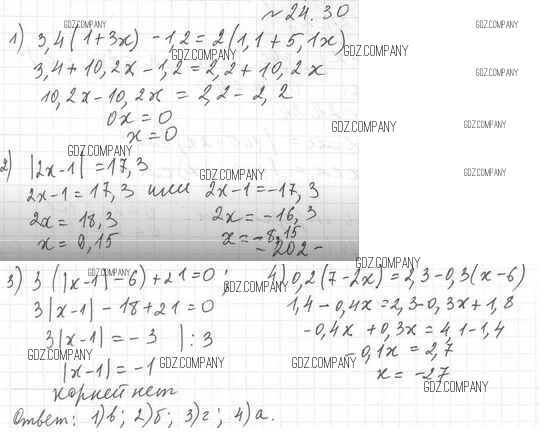 № 24.30
GDZ.COMPANY
GDZ.COMPANY
1) 3,4(1+3x) -1,2 = 2(1,1+5,1x)
GDZ.COMPANY
GDZ.COMPANY
3,4+10,2x-1,2=2,2+10,2x
GDZ.COMPANY
10,2x-10,2x = 2,2-2,2
0x=0
GDZ.COMPANY
GDZ.COMPANY
x=0
GDZ.COMPANY
2) |2x-1|=17,3
GDZ.COMPANY
GDZ.COMPANY
2x-1=17,3 или 2x-1=-17,3
2x = 18,3 2x = -16,3
x = 9,15 x=-8,15
-202-
GDZ.COMPANY
3) 3(|x-1|-6)+21=0;
GDZ.COMPANY
GDZ.COMPANY
3|x-1|-18+21=0
3|x-1|=-3 |:3
GDZ.COMPANY
GDZ.COMPANY
|x-1|=-1
корней нет
4) 0,2(7-2x)=2,3-0,3(x-6)
1,4-0,4x=2,3-0,3x+1,8
-0,4x+0,3x=4,1-1,4
-0,1x=2,7
GDZ.COMPANY
x=-27
GDZ.COMPANY
Ответ: 1)в; 2)б; 3)г; 4)а.